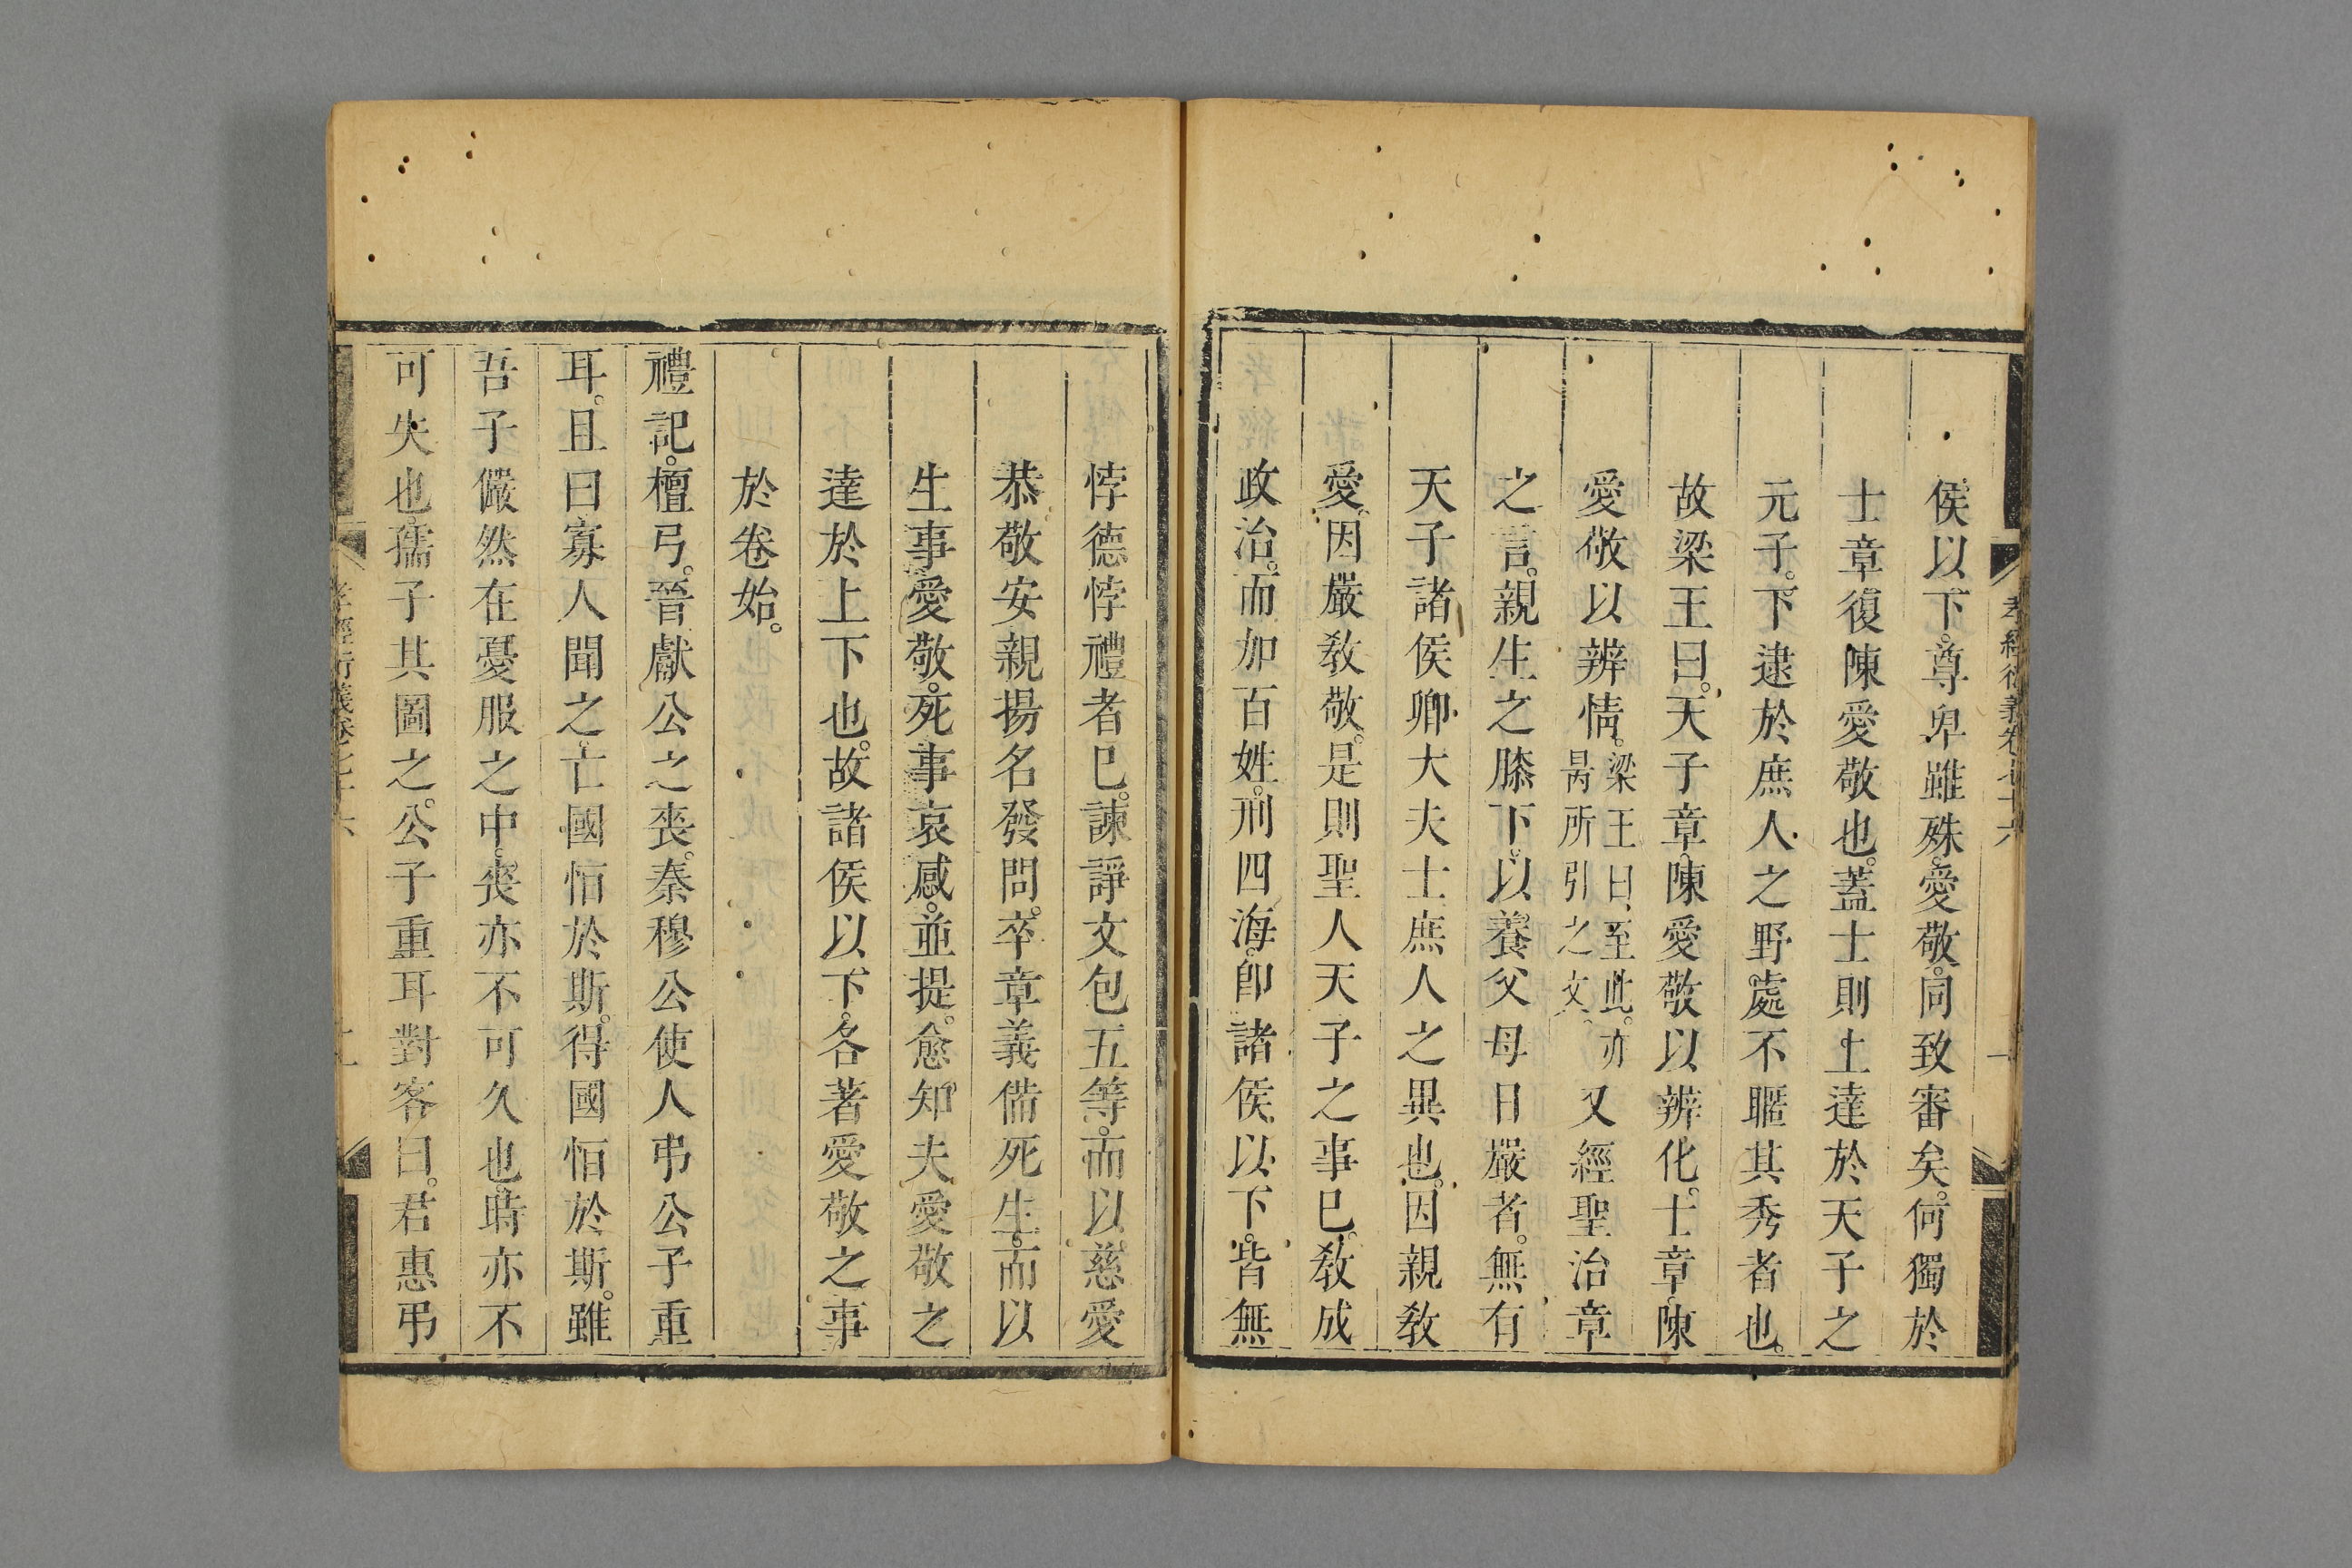 孝經衍義卷七十六
一
侯以下。尊卑雖殊。愛敬。同致審矣。何獨於
士章復陳愛敬也。蓋士則上達於天子之
元子。下逮於庶人之野處不暱其秀者也。
故梁王曰。天子章。陳愛敬以辨化。士章。陳
愛敬以辨情。梁王曰、至此。亦
昺所引之文。又經聖治章
之言。親生之膝下。以養父母日嚴者。無有
天子諸侯卿大夫士庶人之異也。因親教
愛。因嚴教敬。是則聖人天子之事已。教成
政治。而加百姓。刑四海。卽諸侯以下。皆無
悖德悖禮者已。諫諍文包五等。而以慈愛
恭敬安親揚名發問。卒章義備死生。而以
生事愛敬。死事哀慼。並提。愈知夫愛敬之
達於上下也。故諸侯以下。各著愛敬之事
於卷始。
禮記。檀弓。晉獻公之喪。秦穆公使人弔公子重
耳。且曰寡人聞之。亡國恒於斯。得國恒於斯。雖
吾子儼然在憂服之中。喪亦不可久也。時亦不
可失也。孺子其圖之。公子重耳對客曰。君惠弔
孝經衍義卷七十六